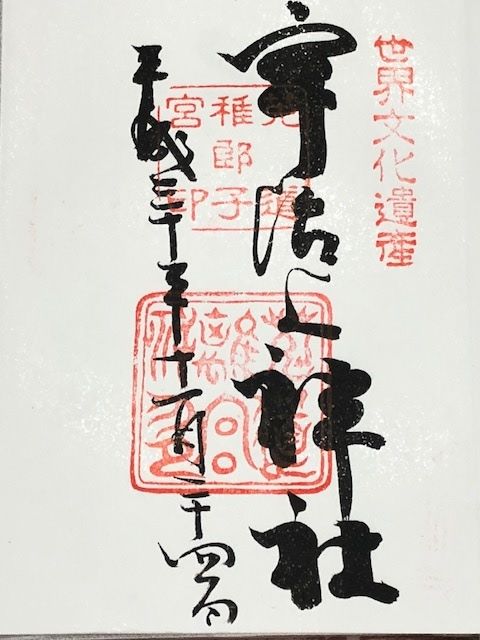 世界文化遺産
宇治上神社
菟道
稚郎子
宮印
平成三十年十一月二十四日